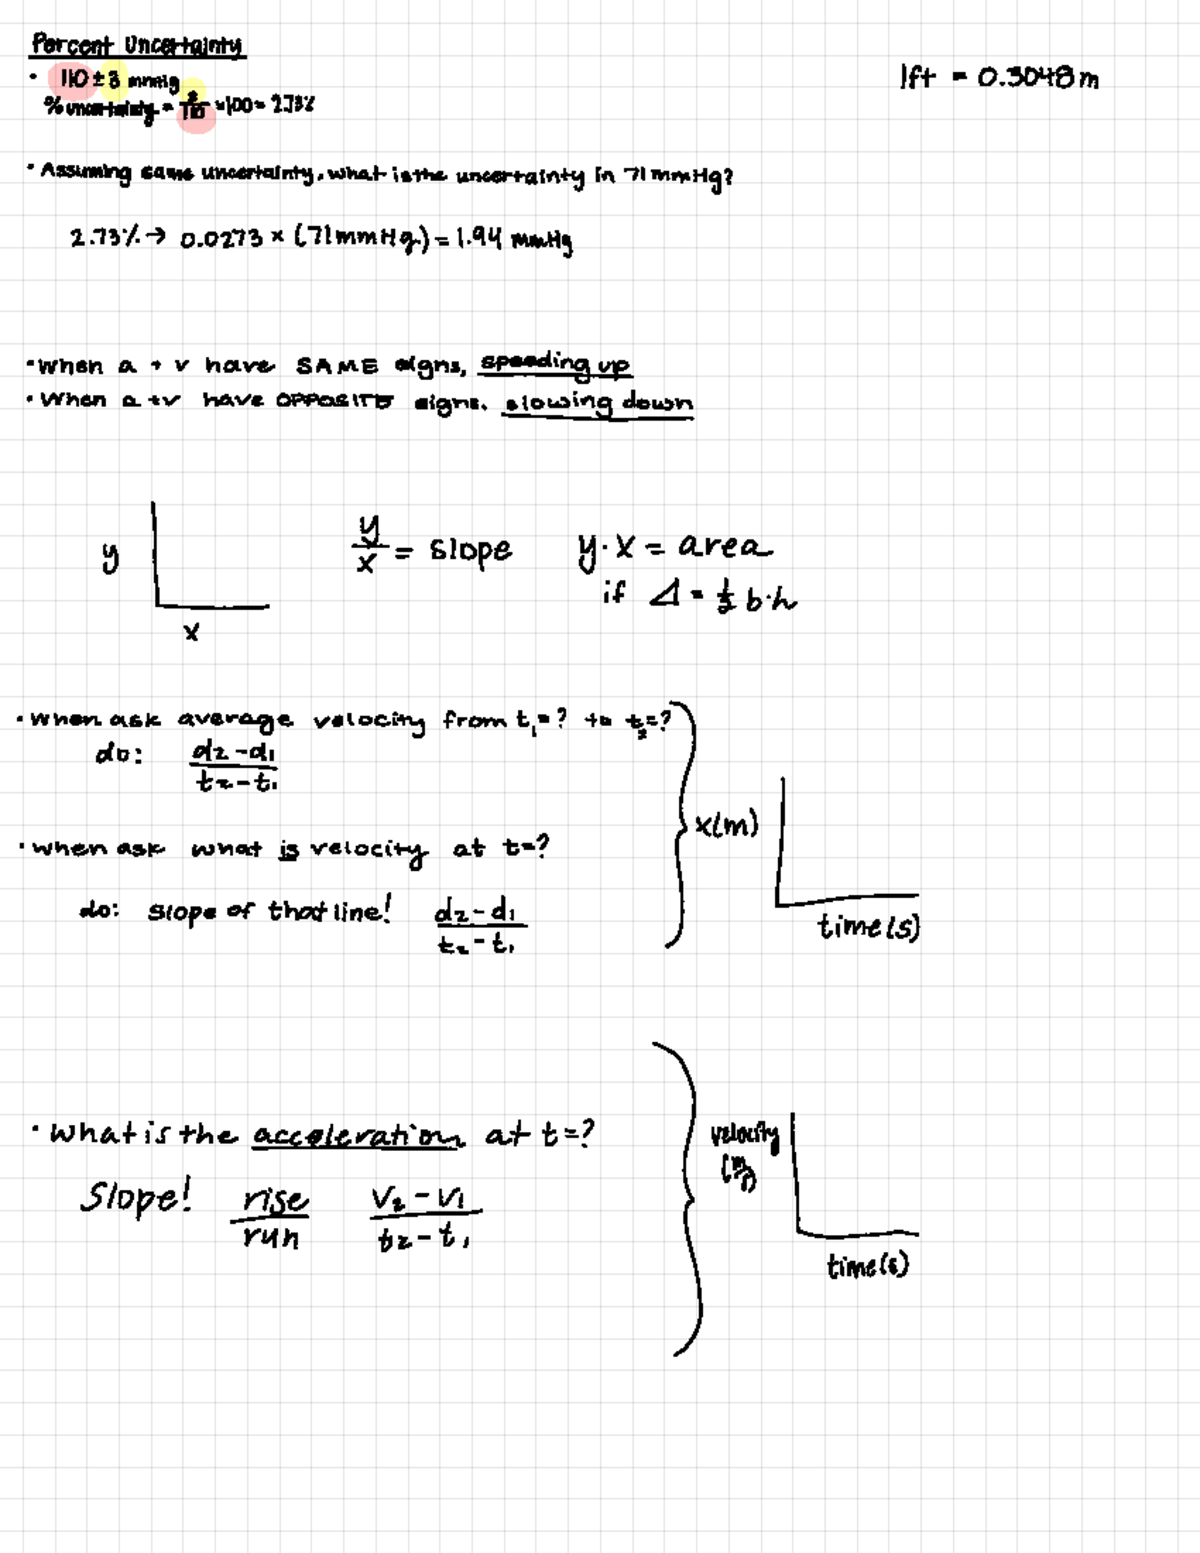 Percent Uncertainty
1ft = 0.3048m
• 110 ± 3 mmHg
% uncertainty = 3/110 × 100 = 2.73%
• Assuming same uncertainty, what is the uncertainty in 71 mmHg?
2.73% → 0.0273 × (71mmHg) = 1.94 mmHg
• When a + v have SAME signs, speeding up
• When a + v have OPPOSITE signs, slowing down
y
x
y/x = slope
y·x = area
if ⊿ = 1/2 b·h
• When ask average velocity from t₁=? to t₂=?
do: d₂-d₁/t₂-t₁
x(m)
time(s)
• when ask what is velocity at t=?
do: slope of that line! d₂-d₁/t₂-t₁
• What is the acceleration at t=?
Slope! rise/run v₂-v₁/t₂-t₁
velocity
(m/s)
time(s)